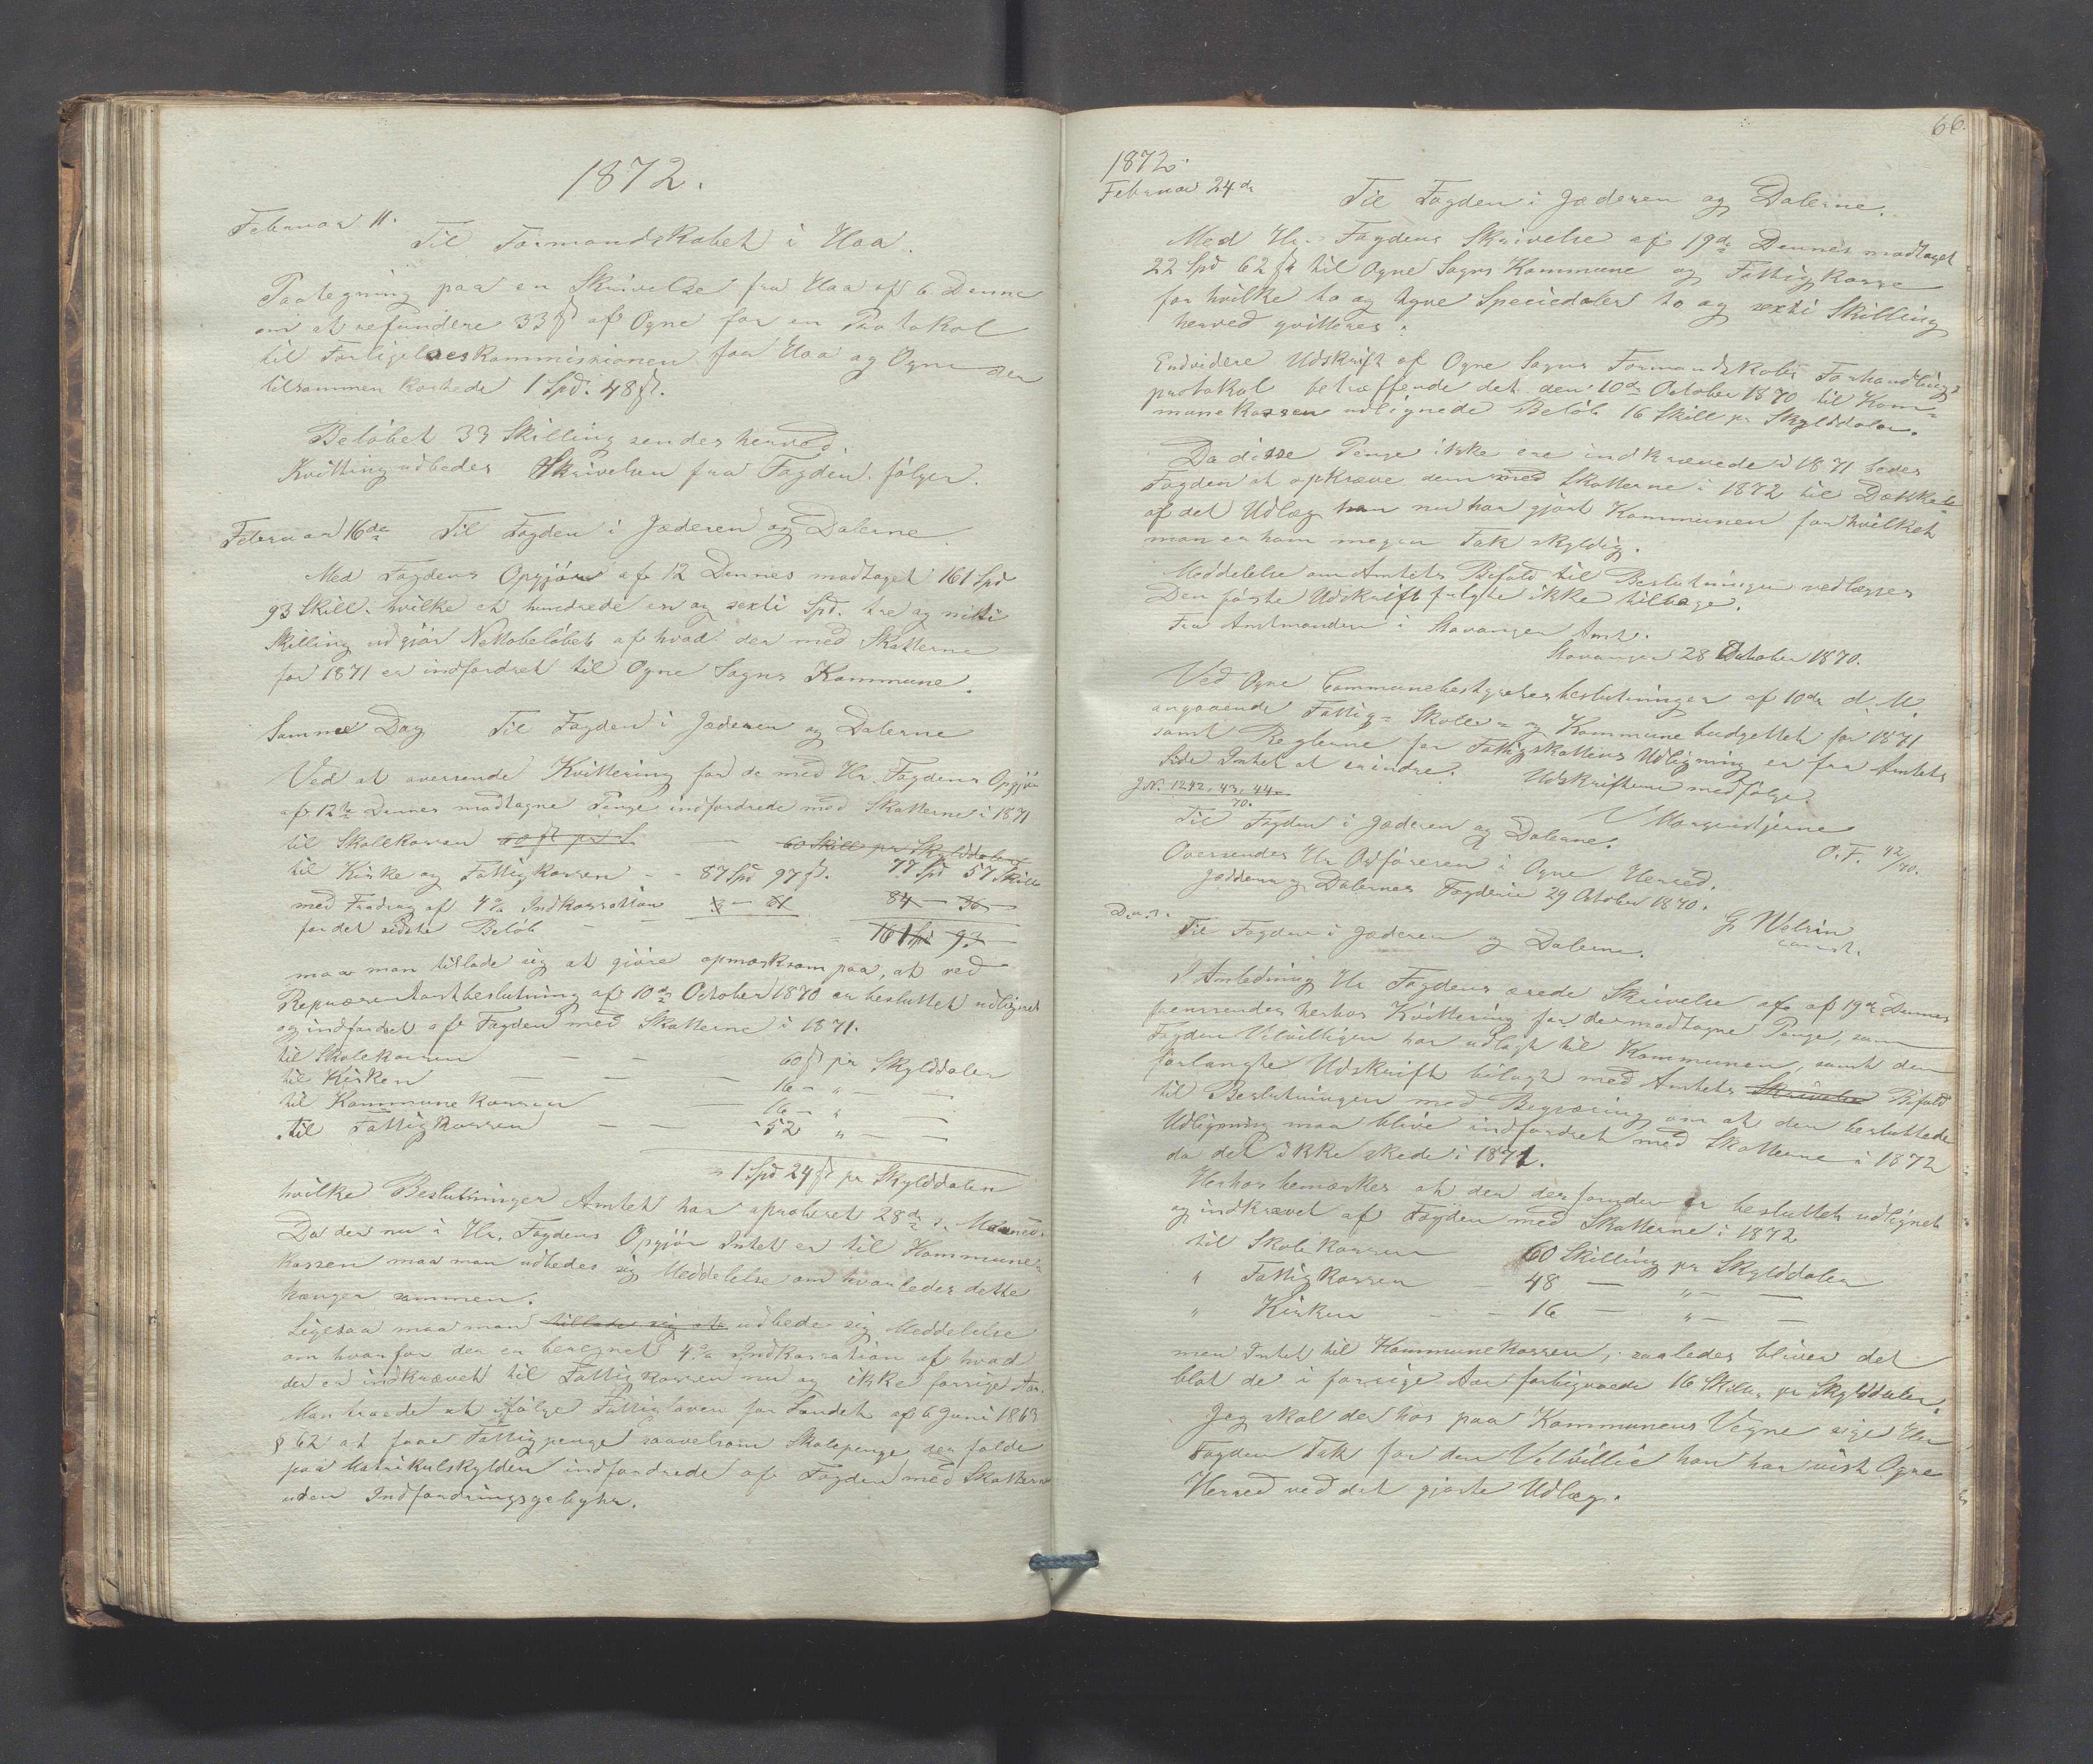 1872.
Februar 11.
Til Formandskabet i Haa.
Paategning paa en Skrivelse fra Haa af 6 Denne
om at refundere 33 ß af Ogne for en Protokol
til Forligelseskommissionen for Haa og Ogne der
tilsammen kostede 1 Spd. 48 ß.
Beløbet 33 Skilling sendes herved.
Kvitting udbedes Skrivelsen fra Fogden følger.
Februar 16de Til Fogden i Jæderen og Dalerne.
Med Fogdens Opgjør af 12 Dennes modtaget 161 Spd
93 Skill. hvilke et hundrede en og sexti Spd. tre og nitti
Skilling udgjør Nettobeløbet af hvad der med Skatterne
for 1871 er indfordret til Ogne Sogns Kommune.
Samme Dag Til Fogden i Jæderen og Dalerne
Ved at oversende Kvittering for de med Hr. Fogdens Opgjør
af 12te Dennes modtagne Penge indfordrede med Skatterne i 1871
til Skolekassen 60 ß pr S. — 60 Skill pr Skylddaler
til Kirke og Fattigkassen - - 87 Spd 97 ß. 77 Spd 57 Skill
med Fradrag af 4% Indkassation 3 — 61 84 — 36 —
for det sidste Beløb - = 161 Spd 93 —
maa man tillade sig at gjøre opmærksom paa, at ved
Repræsentantbeslutning af 10de October 1870 er besluttet udlignet
og indfordret af Fogden med Skatterne i 1871.
til Skolekassen — — 60 ß pr Skylddaler
til Kirken — — — 16 — " — —
til Kommunekassen — 16 — " —
til Fattigkassen — — - 52 " — —
= 1 Spd 24 ß pr Skylddaler
hvilke Beslutninger Amtet har aproberet 28de s. Maaned.
Da der nu i Hr. Fogdens Opgjør Intet er til Kommune=
kassen maa man udbedes sig Meddelelse om hvorledes dette
hænger sammen.
Ligesaa maa man tillade sig at udbede sig Meddelelse
om hvorfor der er beregnet 4% Indkassation af hvad
der er indkrævet til Fattigkassen nu og ikke forrige Aar.
Man troede at ifølge Fattigloven for Landet af 6 Juni 1863
§ 62 at faae Fattigpenge saavelsom Skolepenge der falde
paa Matrikulskylden indfordrede af Fogden med Skatterne
uden Indfordringsgebyhr.
66.
1872
Februar 24de
Til Fogden i Jæderen og Dalerne.
Med Hr. Fogdens Skrivelse af 19de Dennes modtaget
22 Spd 62 ß til Ogne Sogns Kommune og Fattigkasse
for hvilke to og tyve Speciedaler to og sexti Skilling
herved qvitteres.
Endvidere Udskrift af Ogne Sogns Formandskabs Forhandlings
protokol betræffende det den 10de October 1870 til Kom=
munekassen udlignede Beløb 16 Skill pr Skylddaler.
Da disse Penge ikke ere indkrævede i 1871 bedes
Fogden at opkræve dem med Skatterne i 1872 til Dækkelse
af det Udlæg han nu har gjort Kommunen for hvilket
man er ham megen Tak skyldig.
Meddelelse om Amtets Bifald til Beslutningen vedlægges
Den første Udskrift fulgte ikke tilbage.
Fra Amtmanden i Stavanger Amt.
Stavanger 28 October 1870.
Ved Ogne Communebestyrelses beslutninger af 10de d. M.
angaaende Fattig= Skole= og Kommune budgettet for 1871
samt Reglerne for Fattigskattens Udligning er fra Amtets
Side Intet at erindre. Udskrifterne medfølge.
J.N. 1242, 43, 44
70.
Til Fogden i Jæderen og Dalerne.
O.F. 42/70.
Oversendes Hr Ordføreren i Ogne Herred.
Jædderen og Dalernes Fogderie 29 October 1870.
const.
Til Fogden i Jæderen og Dalerne.
I Anledning Hr Fogdens ærede Skrivelse af af 19de Dennes
fremsendes herhos Kvittering for de modtagne Penge, som
Fogden Velvilligen har udlagt til Kommunen, samt den
forlangte Udskrift bilagt med Amtets Skrivelse Bifald
til Beslutningen med Begjæring om at den besluttede
Udligning maa blive indfordret med Skatterne i 1872
da det ikke skede i 1871.
Herhos bemærkes at der desforuden er besluttet udlignet
og indkrævet af Fogden med Skatterne i 1872
til Skolekassen 60 Skilling pr Skylddaler
" Fattigkassen — 48 — " — —
" Kirken - - 16 — " — —
men Intet til Kommunekassen, saaledes bliver det
blot de i forrige Aar forbigaaede 16 Skill. pr Skylddaler.
Jeg skal derhos paa Kommunens Vegne sige Hr
Fogden Tak for den Velvillie han har vist Ogne
Herred ved det gjorte Udlæg.